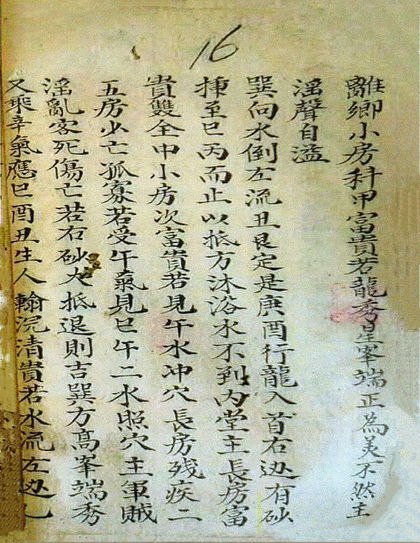 16
離鄉小房科甲富貴若龍秀星峯端正為美不然主
淫聲自溢
巽向水倒左流丑艮定是庚酉行龍入首右边有砂
揷至巳丙而止以抵方沐浴水不到内堂主長房富
貴雙全中小房次富貴若見午水冲穴長房残疾二
五房少亡孤寡若受午氣見巳午二水照穴主軍賊
淫亂客死傷亡若右砂火抵退則吉巽方高峯端秀
又乘辛氣應巳酉丑生人翰浣清貴若水流左边